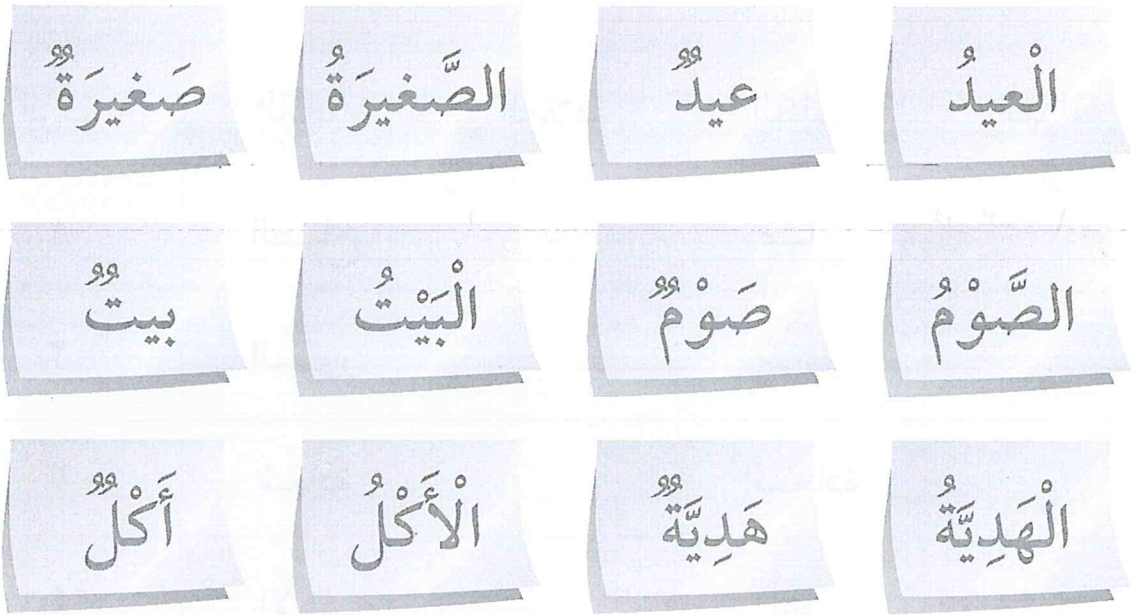 الْعيدُ عيدٌ الصَّغيرَةُ صَغيرَةٌ
الصَّوْمُ صَوْمٌ الْبَيْتُ بيتٌ
الْهَدِيَّةُ هَدِيَّةٌ الْأَكْلُ أَكْلٌ